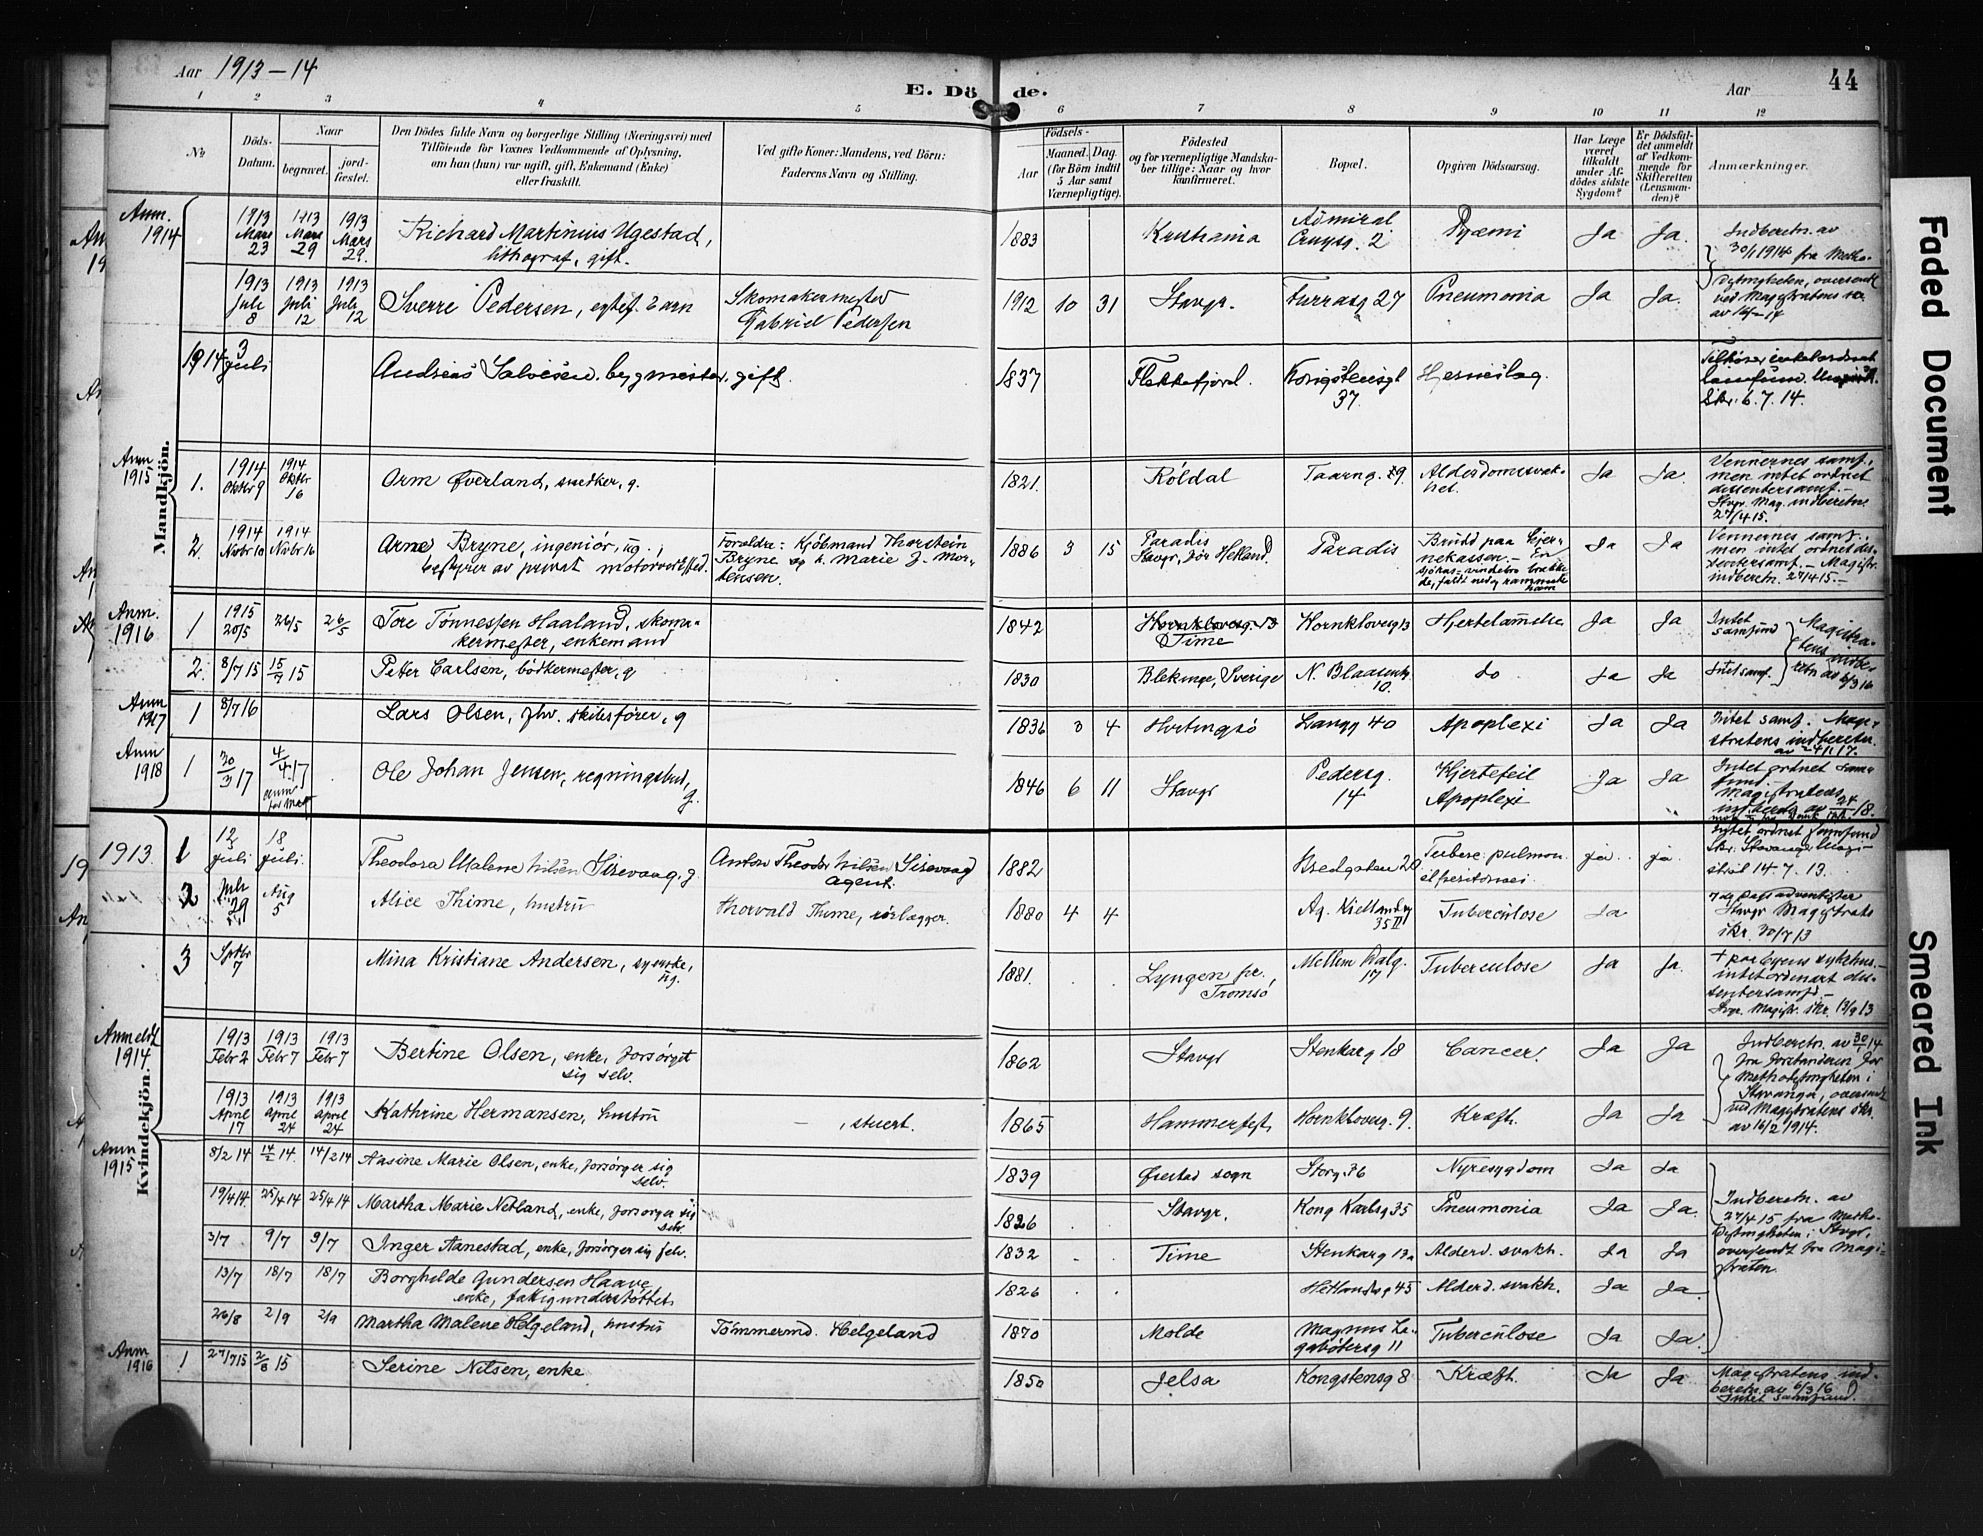 Aar 1913-14
E. Dö de.
Aar
44
1 2 3 4 5 6 7 8 9 10 11 12
No
Döds-Datum.
Naar
begravet.
jord-fæstet.
Den Dödes fulde Navn og borgerlige Stilling (Næringsvei) med
Tilföiende for Voxnes Vedkommende af Oplysning,
om han (hun) var ugift, gift, Enkemand (Enke)
eller fraskilt.
Ved gifte Koner: Mandens, ved Börn:
Faderens Navn og Stilling.
Födsels-
Aar
Maaned. Dag.
(for Börn indtil
5 Aar samt
Værnepligtige).
Födested
og for værnepligtige Mandska-
ber tillige: Naar og hvor
konfirmeret.
Bopæl.
Opgiven Dödsaarsag.
Har Læge
været
tilkaldt
under Af-
dödes sidste
Sygdom?
Er Dödsfal-
det anmeldt
af Vedkom-
mende for
Skifteretten
(Lensman-
den)?
Anmærkninger.
Mandkjön.
Anm. 1914
1913 Mars 23
1913 Mars 29
1913 Mars 29.
Richard Martinius Ugestad,
lithograf, gift.
1883
Kristiania
Admiral
Cruysg. 2
Pyæmi
Ja
Ja.
Indberetn. av
30/1 1914 fra Metho-
1913 Juli 8
1913 Juli 12
1913 Juli 12
Sverre Pedersen, egtef. barn
Skomakermester
Gabriel Pedersen
1912 10 31
Stavgr.
Furrasg 27
Pneumonia
Ja
Ja.
distmgheten, oversendt
ved Magistratens
1914 3 juli
Andreas Salvesen. bygmester, gift.
1837
Flekkefjord.
Kongstensgt
37.
Hjerneslag.
Skr. 6.7.14.
Anm. 1915
1.
1914 Oktbr 9
1914 Oktbr 16
Arm Øverland, snedker, g.
1821.
Röldal
Taarng. 29.
Alderdomssvak-
het.
Ja
Ja.
Vennernes samf.,
men intet ordnet
dissentersamf. -
Stvgr. Mag. indberetn.
27/4 15.
2.
1914 Novbr 10
1914 Novbr 16
Arne Bryne, ingeniör, ug.,
bestyrer av privat motorverksted.
Forældre: Kjöbmand Thorstein
Bryne og h. Marie J. Mor-
tensen.
1886 3 15
Paradis
Stavgr, för Hetland
Paradis
Brudd paa hjer-
nekassen. - En
Ja
Ja
Vennernes samf.,
men intet ordnet dis-
sentersamf. - Magistr.
indberetn. 27/4 15.-
Anm. 1916
1
1915 20/5
26/5
26/5
Tore Tönnessen Haaland, skoma-
kermester, enkemand
1842
Hornklovesg. 13
Time
Hornklovesg 13
Hjertelamelse
Ja
Ja
Intet
samfund
Magistra-
tens indbe-
retn av 6/3 16
2.
8/7 15
15/7 15
Petter Carlsen, bödkermester, g
1830
Blekinge, Sverige
N. Blaasenb.
10.
do
Ja
Ja
Intet samf.
Anm 1917
1
8/7 16
Lars Olsen, fhv. skibsförer, g
1836 3 4
Hvitingsö
Langg 40
Apoplexi
Ja
Ja
Intet samf. Magi-
stratens indberetn.
av 4/1 17.
Anm 1918
1
30/3 17
4/4 17
Ole Johan Jensen, regningsbud,
g.
1846 6 11
Stavgr
Pedersg.
14
Hjertefeil
Apoplexi
Ja
Ja
Intet ordnet sam-
fund.
Magistratens
indberetn av 24/1 18.
Kvindekjön.
1913.
1
12 juli
18 juli
Theodora Malene Nilsen Sirevaag, g
Anton Theodor Nilsen Sirevaag
agent.
1882
Bredgaten 20
Tuberc. pulmon.
et peritonei
ja.
ja.
Intet ordnet samfund
Skr. Stavanger Magi-
strat 14.7.13.
2
Juli 29
Aug 5
Alice Thime, hustru
Thorvald Thime, rörlægger.
1880 4 4
Ag. Kiellandsg
35 II
Tuberculose
Ja
7de dags adventister
Stavgr Magistrats
skr. 30/7 13
3
Septbr 7
Mina Kristiane Andersen, syerske,
ug.
1881.
Lyngen pr.
Tromsö
Mellem Dalg.
17
Tuberculose
Ja
Ja.
+ paa byens sykehus. -
intet ordnet dis-
sentersamf. -
Stvgr. Magistr. skr. 13/9 13
Anmeldt 1914
1913 Febr 2
1913 Febr 7
1913 Febr 7
Bertine Olsen, enke, forsörget
sig selv.
1862
Stavgr
Stenkarg 18
Cancer.
Ja
Ja
Indberetn. av 30/1 14
fra forstanderen for
Methodistmgheten i
Stavanger, oversendt
ved Magistratens skr.
av 16/2 1914.
1913 April 17
1913 April 24
1913 April 24
Kathrine Hermansen, hustru
- , stuert.
1865
Hammerfest
Hornklovesg. 9.
Kræft.
Ja
Ja
Anm 1915
8/2 14
14/2 14.
14/2 14
Aasine Marie Olsen, enke, forsörger sig
selv.
1839
Ørestad sogn
Storg. 76
Nyresygdom
Ja
Ja
19/4 14.
25/4 14
25/4 14
Martha Marie Netland, enke, forsörger sig
selv
1826
Stavgr.
Kong Karlsg 35
Pneumonia
Ja
Ja.
Indberetn. av
27/4 15 fra Metho-
distmgheten i Stvgr,
oversendt fra Magi-
straten.
3/7
9/7
9/7
Inger Aanestad, enke, forsörger sig selv.
1832
Time
Stenkarg 12a
Alderd. svakh.
Ja
Ja
13/7
18/7
18/7
Borghilde Gundersen Haave,
enke, fattigunderstöttet.
1826
Hetlandsg 45
Alderd. svakh.
Ja
Ja.
26/8
2/9
2/9
Martha Malene Helgeland, hustru
Tömmermd. Helgeland
1870
Molde
Magnus La-
gabötersg 11
Tuberculose
Ja
Ja.
Anm 1916
1
27/7 15
2/8 15
Serine Nilsen, enke
1850
Jelsa
Kongstensg 8
Kræft.
Ja
Ja.
Magistratens ind-
beretn. av 6/3 16
Intet samfund.
Faded Document
Smeared Ink